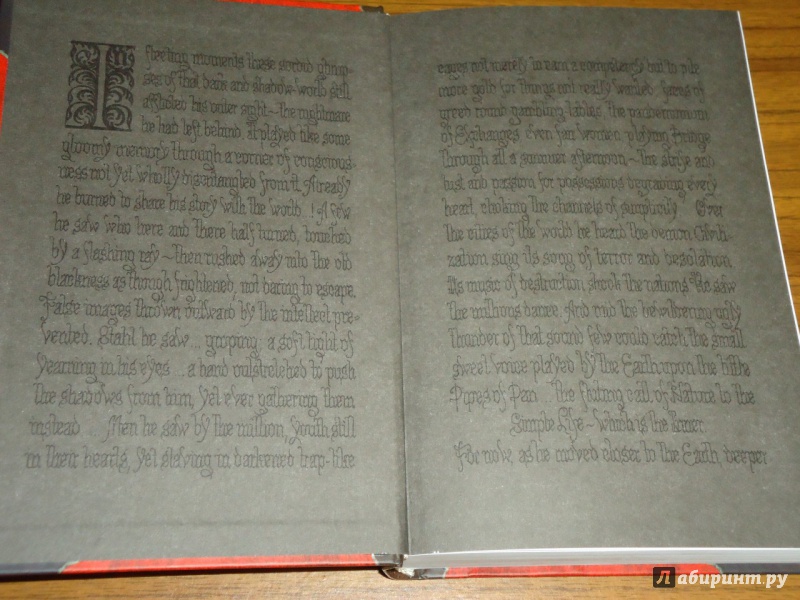 In
fleeting moments these sordid glimp-
ses of that dark and shadow-world still
afflicted his outer sight~the nightmare
he had left behind. It played like some
gloomy memory through a corner of conscious-
ness not yet wholly disentangled from it. Already
he burned to share his story with the world...! A few
he saw who here and there half turned, touched
by a flashing ray~then rushed away into the old
blackness as though frightened, not daring to escape.
False images thrown outward by the intellect pre-
vented. Stahl he saw... groping; a soft light of
yearning in his eyes... a hand outstretched to push
the shadows from him, yet ever gathering them
instead... Men he saw by the million, youth still
in their hearts, yet slaving in darkened trap-like
cages not merely to earn a competency but to pile
more gold for things not really wanted; faces of
greed round gambling-tables; the pandemonium
of Exchanges; even fair women, playing Bridge
through all a summer afternoon~the strife and
lust and passion for possessions degrading every
heart, choking the channels of simplicity... Over
the cities of the world he heard the demon Civili-
zation sing its song of terror and desolation.
Its music of destruction shook the nations. He saw
the millions dance. And mid the bewildering ugly
thunder of that sound few could catch the small
sweet voice played by the Earth upon the little
Pipes of Pan... the fluting call of Nature to the
Simple Life~which is the Inner.
For now, as he moved closer to the Earth, deeper
Лабиринт.ру